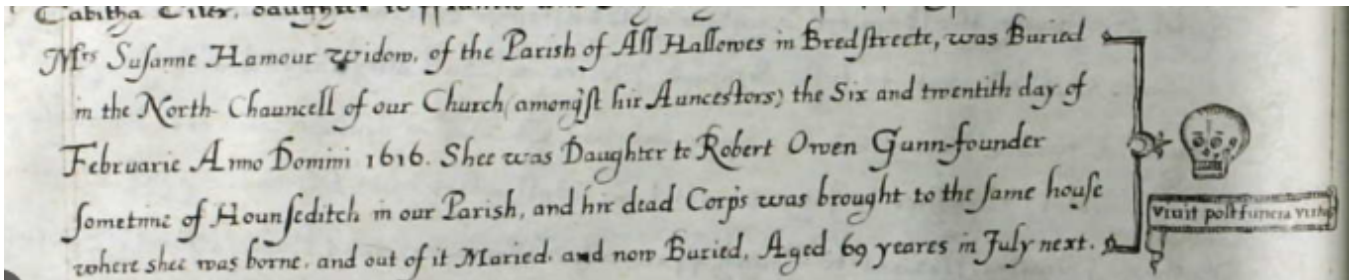 Tabitha Tiler, daughter to
Mrs Susanne Hamour widow, of the Parish of All Hallowes in Bredstreete, was Buried
in the North-Chauncell of our Church (amongst hir Auncestors) the Six and twentith day of
Februarie Anno Domini 1616. Shee was Daughter to Robert Owen Gunn-founder
sometime of Hounseditch in our Parish, and hir dead Corps was brought to the same house
where shee was borne, and out of it Maried, and now Buried, Aged 69 yeares in July next.
Vivit post funera virtus